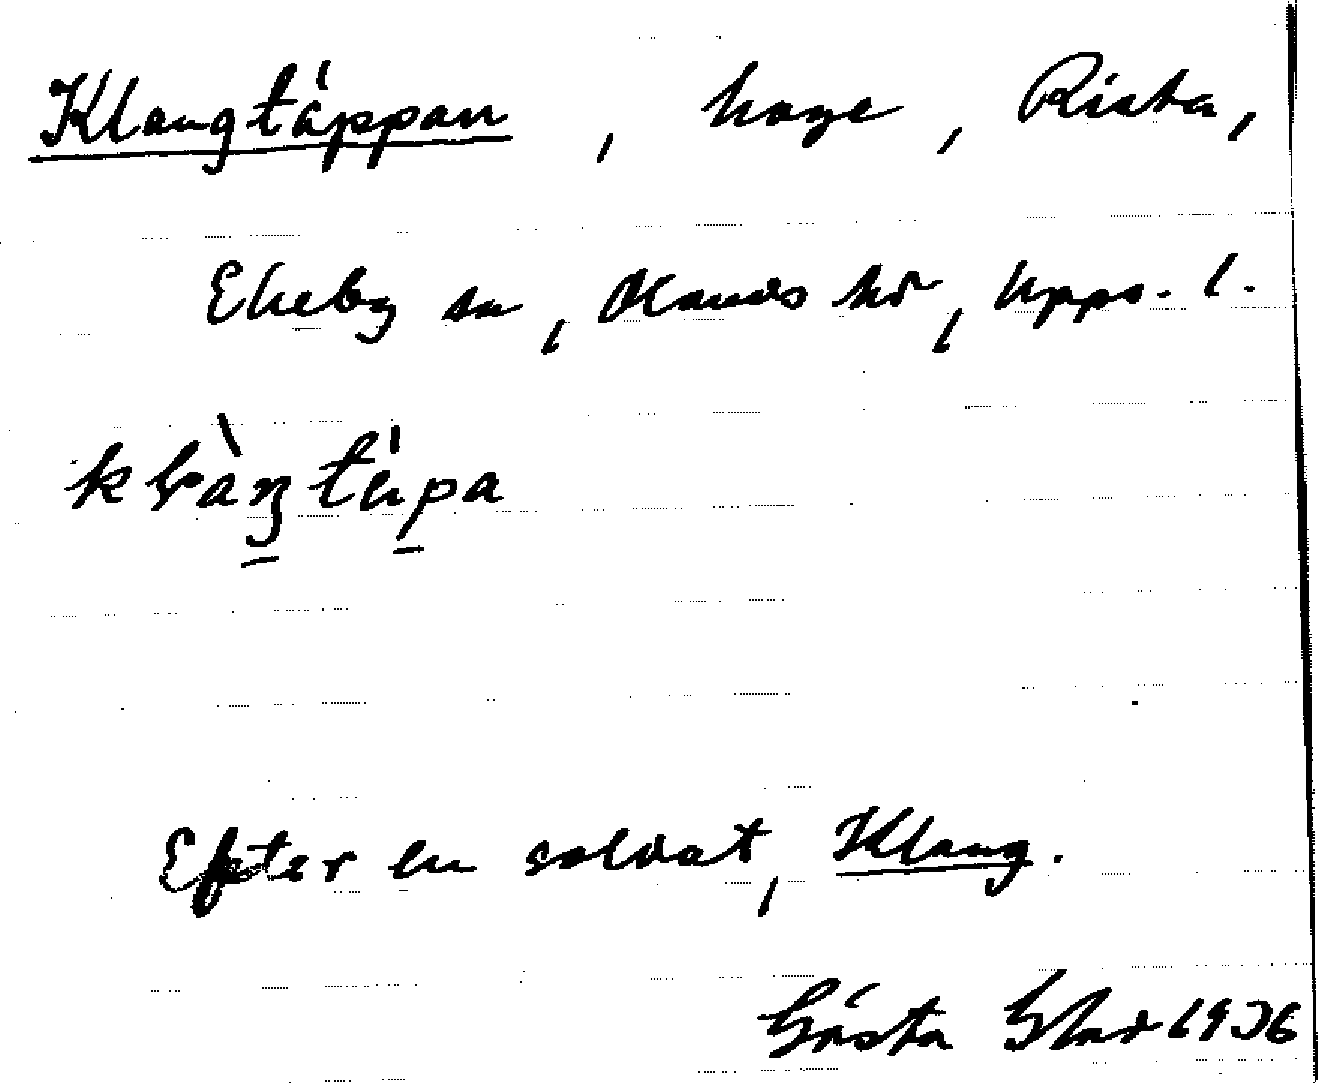 Klangtäppan, hage, Rista,
Ekeby sn, Olands hd, Upps. l.
klàŋtäpa
Efter en soldat, Klang.
Gösta 1936